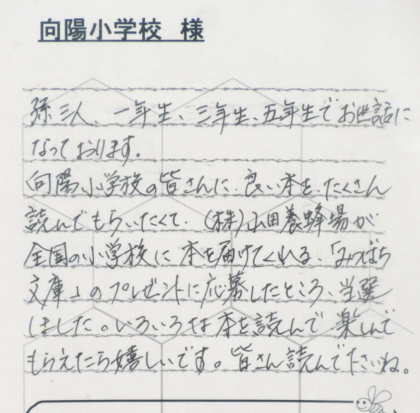 向陽小学校 様
孫三人、一年生、三年生、五年生でお世話に
なっております。
向陽小学校の皆さんに、良い本を、たくさん
読んでもらいたくて、(株)山田養蜂場が
全国の小学校に本を届けてくれる、「みつばち
文庫」のプレゼントに応募したところ、当選
しました。いろいろな本を読んで、楽しんで
もらえたら嬉しいです。皆さん読んで下さいね。